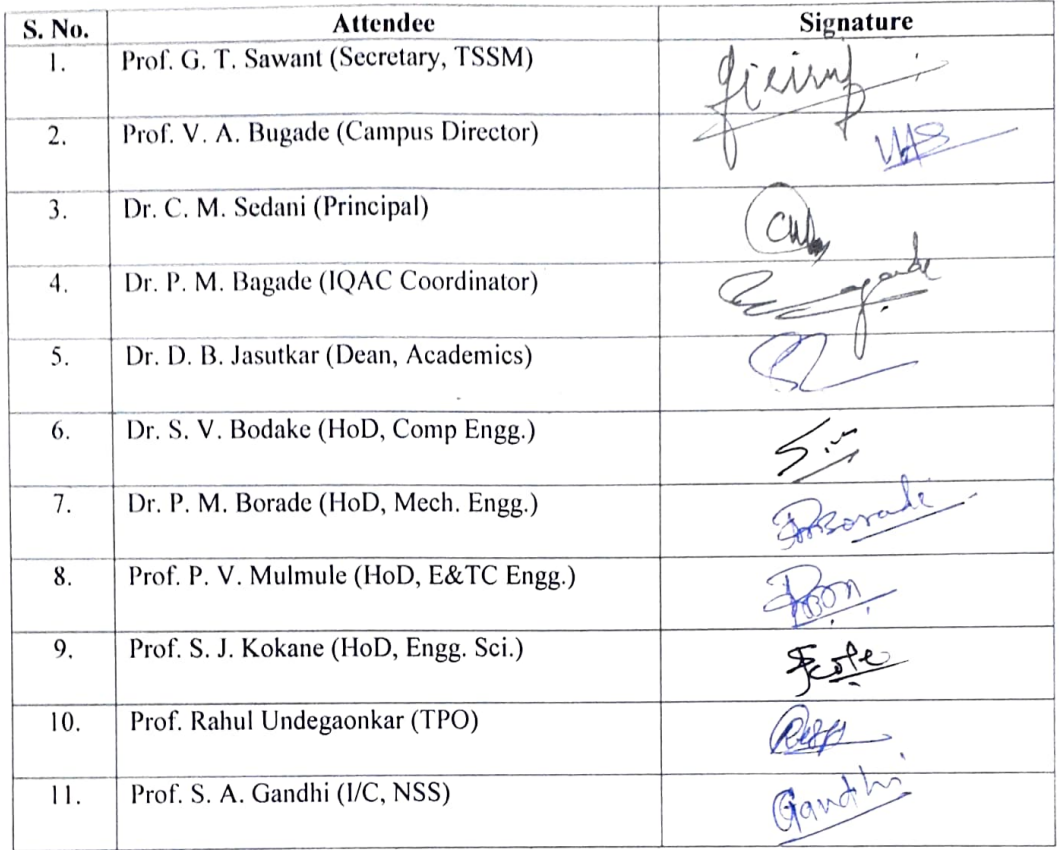 S. No. Attendee Signature
1. Prof. G. T. Sawant (Secretary, TSSM)
2. Prof. V. A. Bugade (Campus Director)
3. Dr. C. M. Sedani (Principal)
4. Dr. P. M. Bagade (IQAC Coordinator)
5. Dr. D. B. Jasutkar (Dean, Academics)
6. Dr. S. V. Bodake (HoD, Comp Engg.)
7. Dr. P. M. Borade (HoD, Mech. Engg.) PMBorade
8. Prof. P. V. Mulmule (HoD, E&TC Engg.)
9. Prof. S. J. Kokane (HoD, Engg. Sci.)
10. Prof. Rahul Undegaonkar (TPO)
11. Prof. S. A. Gandhi (I/C, NSS) Gandhi